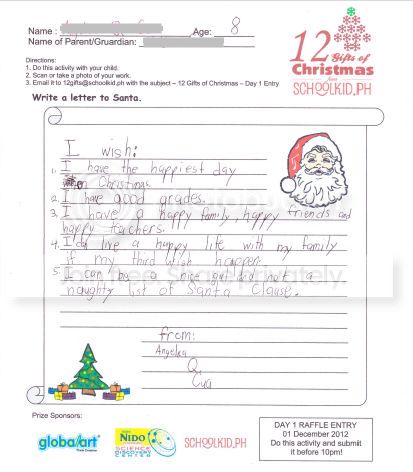 Name : Age: 8
Name of Parent/Gruardian:
12
Gifts of
Christmas
from
SCHOOLKID.PH
Directions:
1. Do this activity with your child.
2. Scan or take a photo of your work.
3. Email it to 12gifts@schoolkid.ph with the subject – 12 Gifts of Christmas – Day 1 Entry
Write a letter to Santa.
I wish:
1. I have the happiest day
Christmas.
2. I have good grades.
3. I have a happy family, happy friends and
happy teachers.
4. I live a happy life with my family
if my third wish happen.
5. I can be a nice girl and not a
naughty list of Santa Clause.
from:
Angelica
Q.
Prize Sponsors:
globalart
Think Creative
Nestlé
NIDO
SCIENCE
DISCOVERY
CENTER
SCHOOLKID.PH
DAY 1 RAFFLE ENTRY
01 December 2012
Do this activity and submit
it before 10pm!